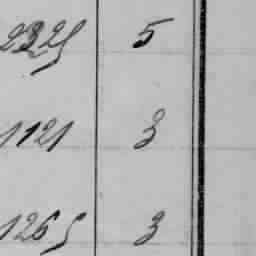 2325 5
1121 3
1265 3